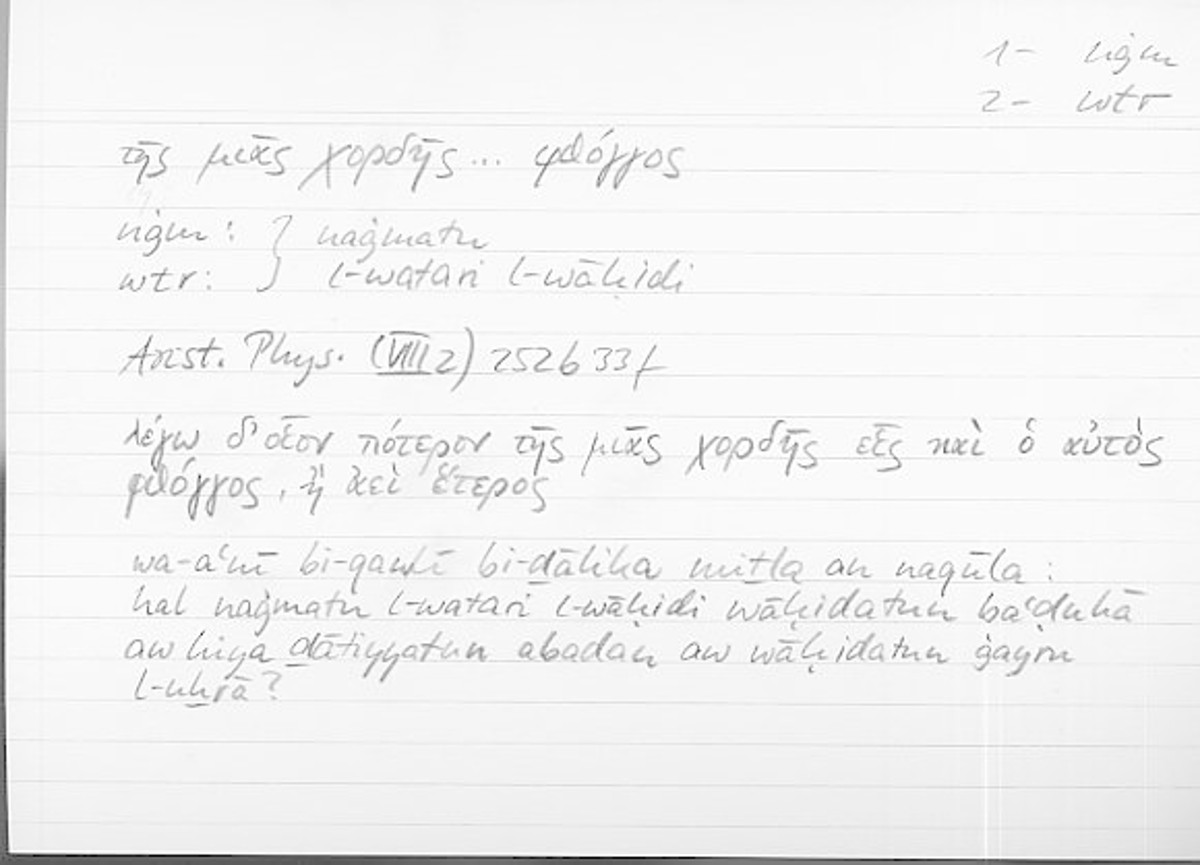 1- nġm
2- wtr
τῆς μιᾶς χορδῆς... φθόγγος
nġm: } naġmatu
wtr: } l-watari l-wāḥidi
Arist. Phys. (VIII 2) 252b33f
λέγω δ' οἷον πότερον τῆς μιᾶς χορδῆς εἷς καὶ ὁ αὐτὸς
φθόγγος, ἢ ἀεὶ ἕτερος
wa-aʿnī bi-qawlī bi-ḏālika miṯla an naqūla:
hal naġmatu l-watari l-wāḥidi wāḥidatun baʿḍuhā
aw hiya ḏātiyyatun abadan aw wāḥidatun ġayru
l-uḫrā?